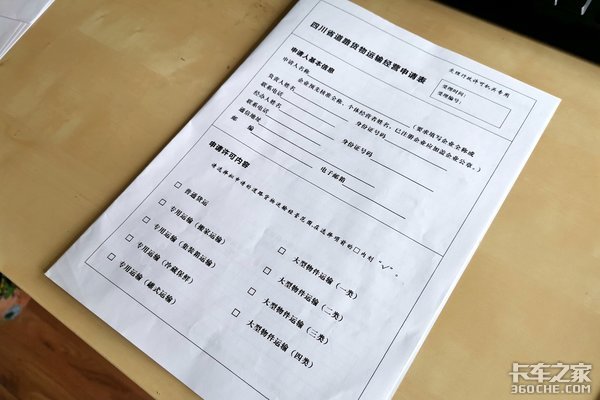 四川省道路货物运输经营申请表
受理行政许可机关专用
受理时间：
受理编号：
申请人基本信息
申请人名称
（要求填写企业全称或
企业预先核准全称、个体经营者姓名，已注册企业应加盖企业公章。）
负责人姓名 身份证号码
联系电话
经办人姓名 身份证号码
联系电话
通信地址
邮 编 电子邮箱
申请许可内容
请选择拟申请的道路货物运输经营范围，在选项前的□内划“√”。
□ 普通货运
□ 专用运输（搬家运输）
□ 专用运输（集装箱运输）
□ 专用运输（冷藏保鲜）
□ 专用运输（罐式运输）
□ 大型物件运输（一类）
□ 大型物件运输（二类）
□ 大型物件运输（三类）
□ 大型物件运输（四类）
卡车之家
360che.com